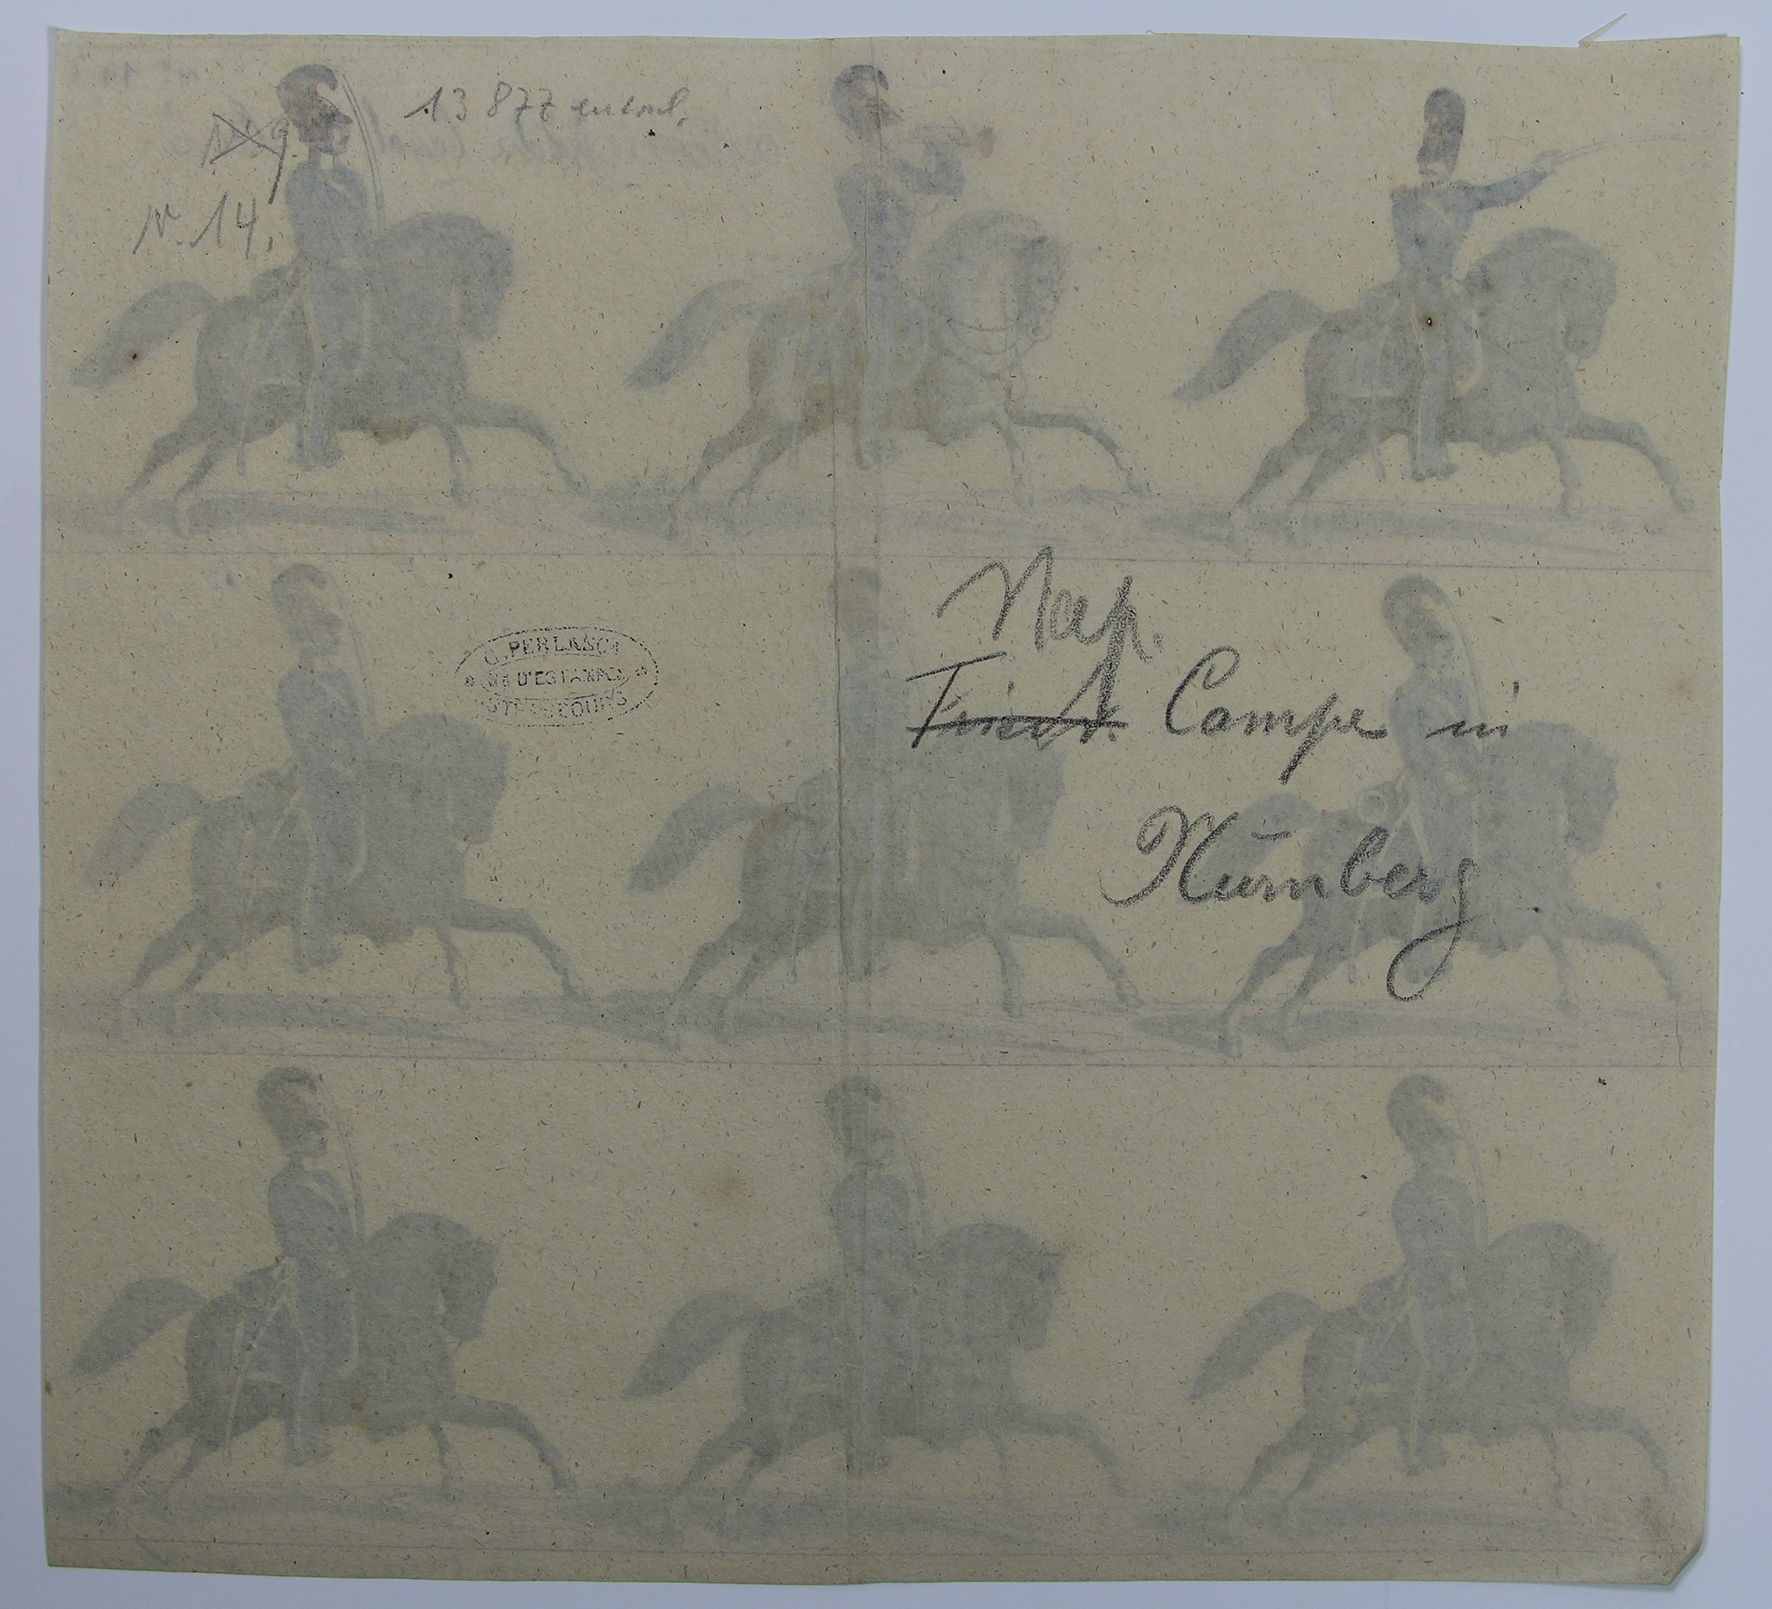 13877
N. 14.
G. PERLASCA
Md D'ESTAMPES
STRASBOURG
Nap.
Friedr. Campe in
Nürnberg